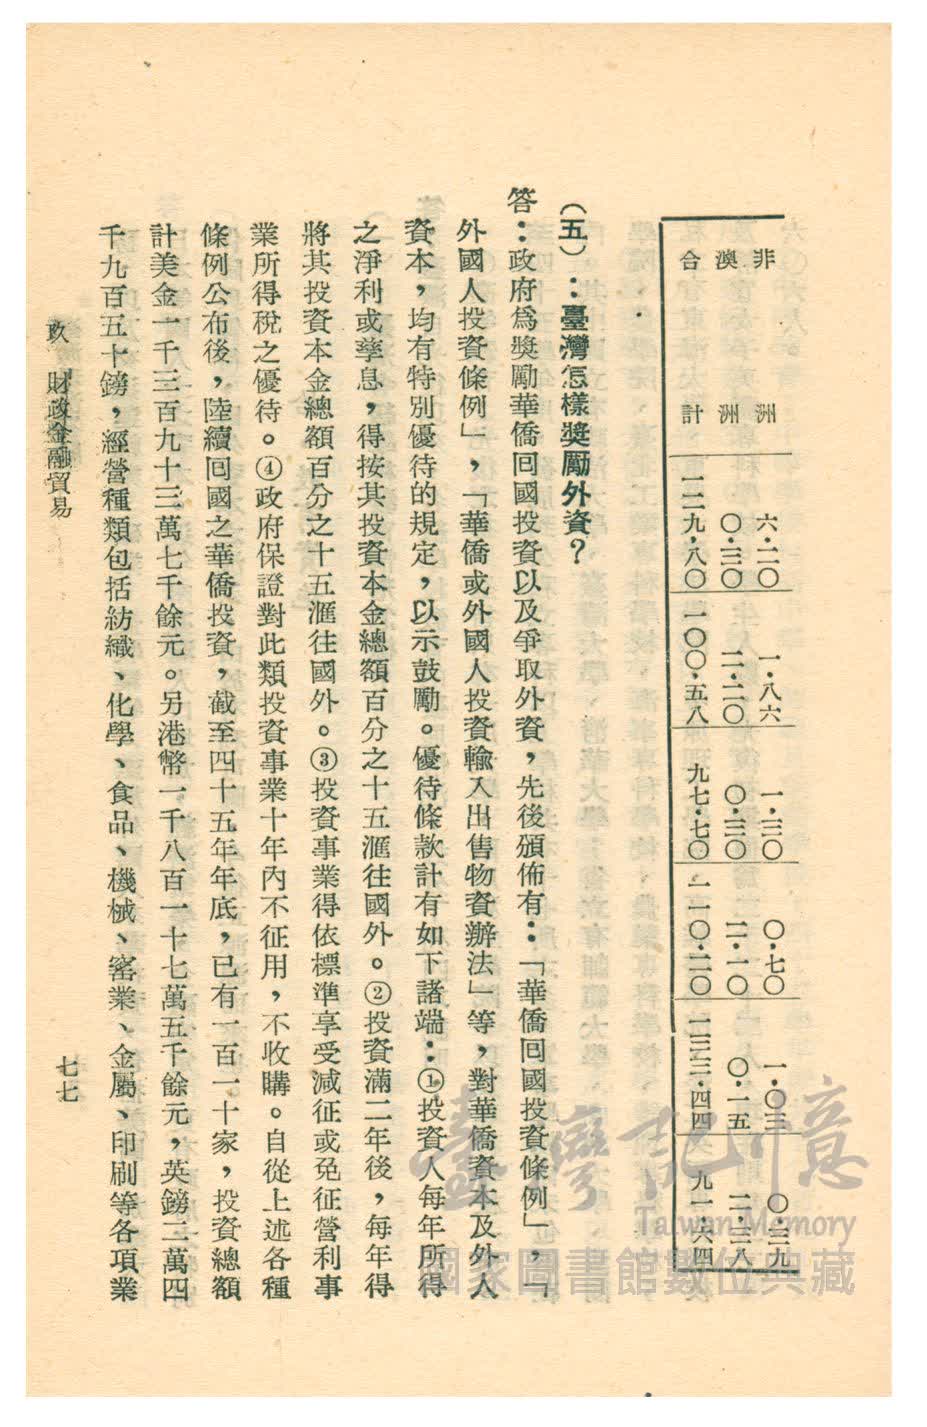 非洲 六・二〇 一・八六 一・三〇 〇・七〇 一・〇三 〇・三九
澳洲 〇・三〇 二・二〇 〇・三〇 二・一〇 〇・一五 二・三八
合計 一二九・八〇 一〇〇・五八 九七・七〇 一一〇・二〇 一三三・四四 九一・六四
（五）：臺灣怎樣獎勵外資？
答：政府爲獎勵華僑回國投資以及爭取外資，先後頒佈有：「華僑回國投資條例」，「
外國人投資條例」，「華僑或外國人投資輸入出售物資辦法」等，對華僑資本及外人
資本，均有特別優待的規定，以示鼓勵。優待條款計有如下諸端：①投資人每年所得
之淨利或孳息，得按其投資本金總額百分之十五滙往國外。②投資滿二年後，每年得
將其投資本金總額百分之十五滙往國外。③投資事業得依標準享受減征或免征營利事
業所得稅之優待。④政府保證對此類投資事業十年內不征用，不收購。自從上述各種
條例公布後，陸續回國之華僑投資，截至四十五年年底，已有一百一十家，投資總額
計美金一千三百九十三萬七千餘元。另港幣一千八百一十七萬五千餘元，英鎊二萬四
千九百五十鎊，經營種類包括紡織、化學、食品、機械、窰業、金屬、印刷等各項業
玖 財政金融貿易
七七
臺灣記憶
Taiwan Memory
國家圖書館數位典藏